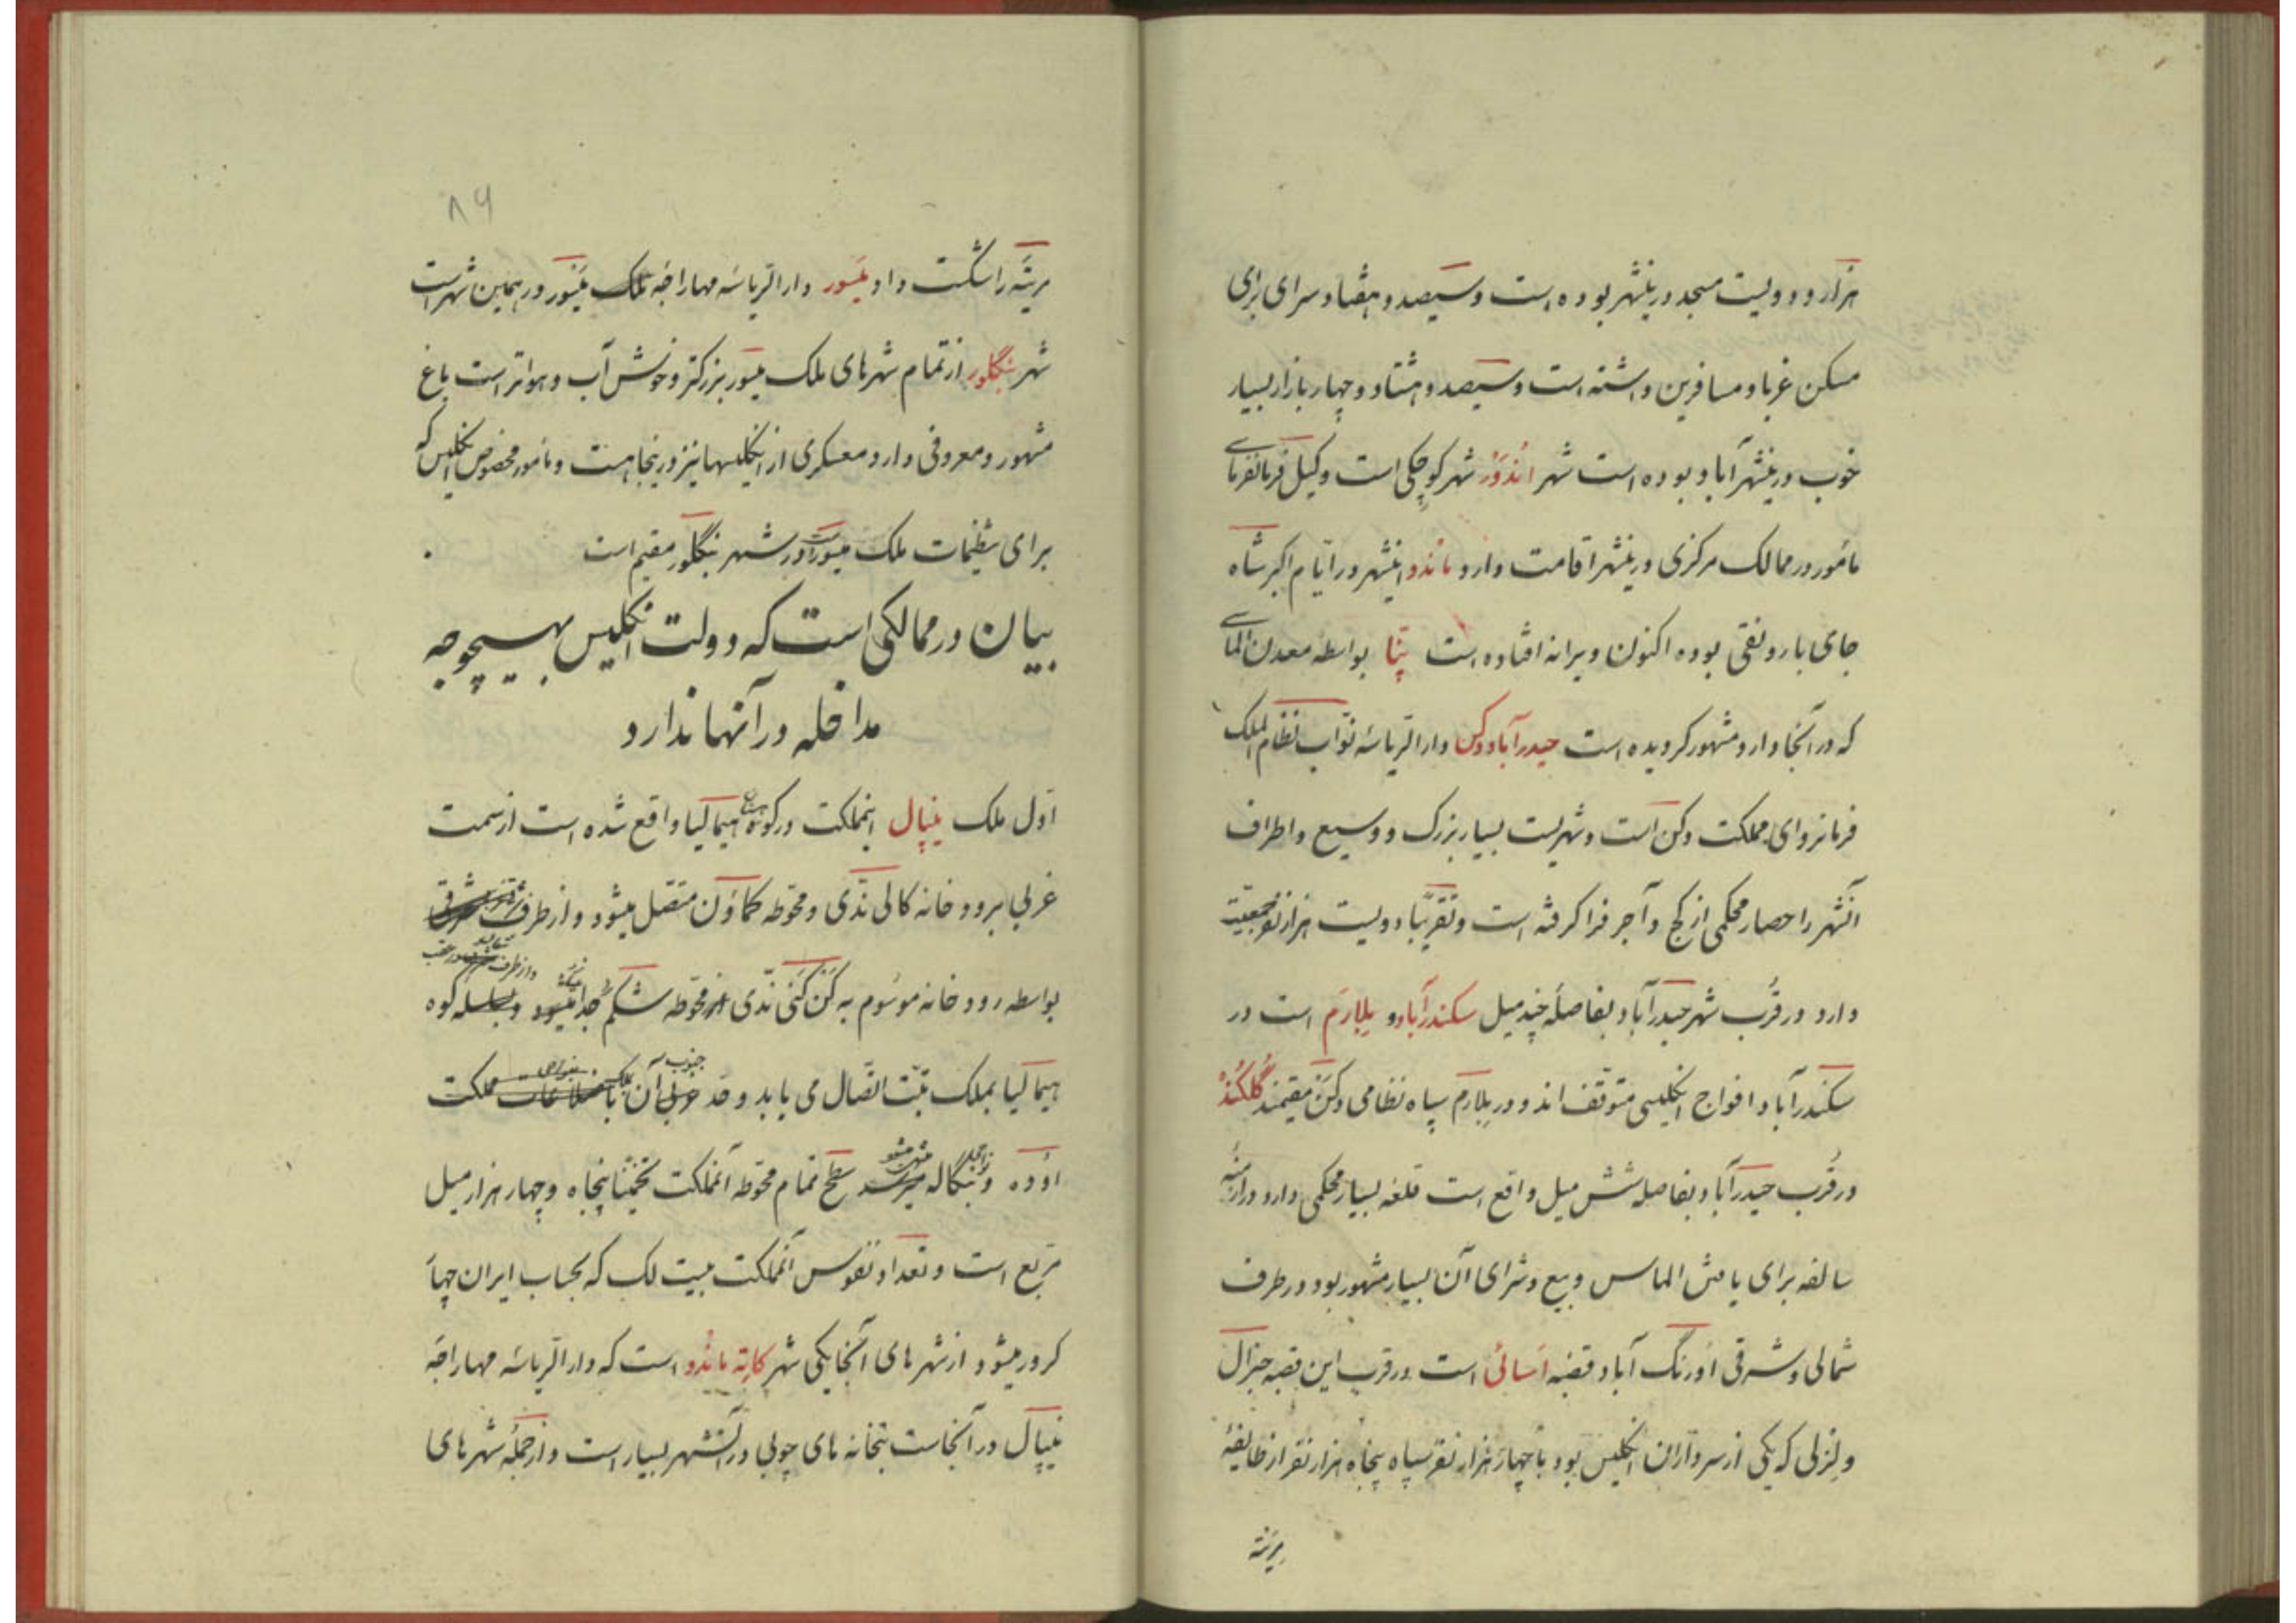 هزار و دویست مسجد درینشهر بوده است و سیصد و هفتاد سرای برای
مسکن غربا و مسافرین داشته است و سیصد و هشتاد و چهار بازار بسیار
خوب درینشهر آباد بوده است شهر اندَوْر شهر کوچکی است وکیل فرمانفرمای
مأمور در ممالک مرکزی درینشهر اقامت دارد ماندو اینشهر در ایّام اکبر شاه
جای با رونقی بوده اکنون ویرانه افتاده است پَنّا بواسطه معدن الماسی
که در آنجا دارد مشهور کردیده است حیدرآباد دکن دارالریاسهٔ نوّاب نظام الملک
فرمانروای مملکت دکن است و شهریست بسیار بزرک و وسیع و اطراف
آنشهر را حصار محکمی از کچ و آجر فرا کرفته است و تقریبًا دویست هزار نفر جمعیّت
دارد در قُرب شهر حیدرآباد بفاصلهٔ چند میل سکندرآباد و بلارَم است در
سکندرآباد افواج انکلیسی متوقّف اند و در بلارَم سپاه نظامی دکن مقیمند گلکُنْدْ
در قُرب حیدرآباد بفاصله شش میل واقع است قلعه بسیار محکمی دارد در ازمنهٔ
سالفه برای یافتن الماس و بیع و شرای آن بسیار مشهور بود در طرف
شمالی و شرقی اورنگ آباد قصبه اَسائی است در قرب این قصبه جنرال
ولزلی که یکی از سرداران انکلیس بود با چهار هزار نفر سپاه پنجاه هزار نفر از طایفهٔ
مریته
۸۶
مریته را شکست داد میسور دارالریاسه مهاراجهٔ ملک میسور در همین شهر است
شهر بنگلور از تمام شهرهای ملک میسور بزرکتر و خوش آب و هواتر است باغ
مشهور و معروفی دارد معسکری از انکلیسها نیز درینجا هست و مأمور مخصوص انکلیس که
برای تنظیمات ملک میسور است در شهر بنگلور مقیم است
بیان در ممالکی است که دولت انکلیس بهیچوجه
مداخله در آنها ندارد
اوّل ملک نیپال اینمملکت در کوه هیمالیا واقع شده است از سمت
غربی برود خانه کالی ندّی و محوّطه کماوَن متّصل میشود و از طرف شرقی
بواسطه رود خانه موسُوم به کَن کَنی ندّی از محوّطه شکّم جدا میشود و بسلسله کوه
هیمالیا بملک تبّت اتّصال می یابد و حدّ جنوبی آن مملکت
اوُده و بنگاله سطح تمام محوّطه آنمملکت تخمینًا پنجاه و چهار هزار میل
مربّع است و تعداد نفوس آنمملکت بیست لک که بحساب ایران چهار
کرور میشود از شهر های آنجا یکی شهر کاته ماندو است که دارالریاسه مهاراجه
نیپال در آنجاست بتخانه های چوبی در آنشهر بسیار است و از جملهٔ شهر های